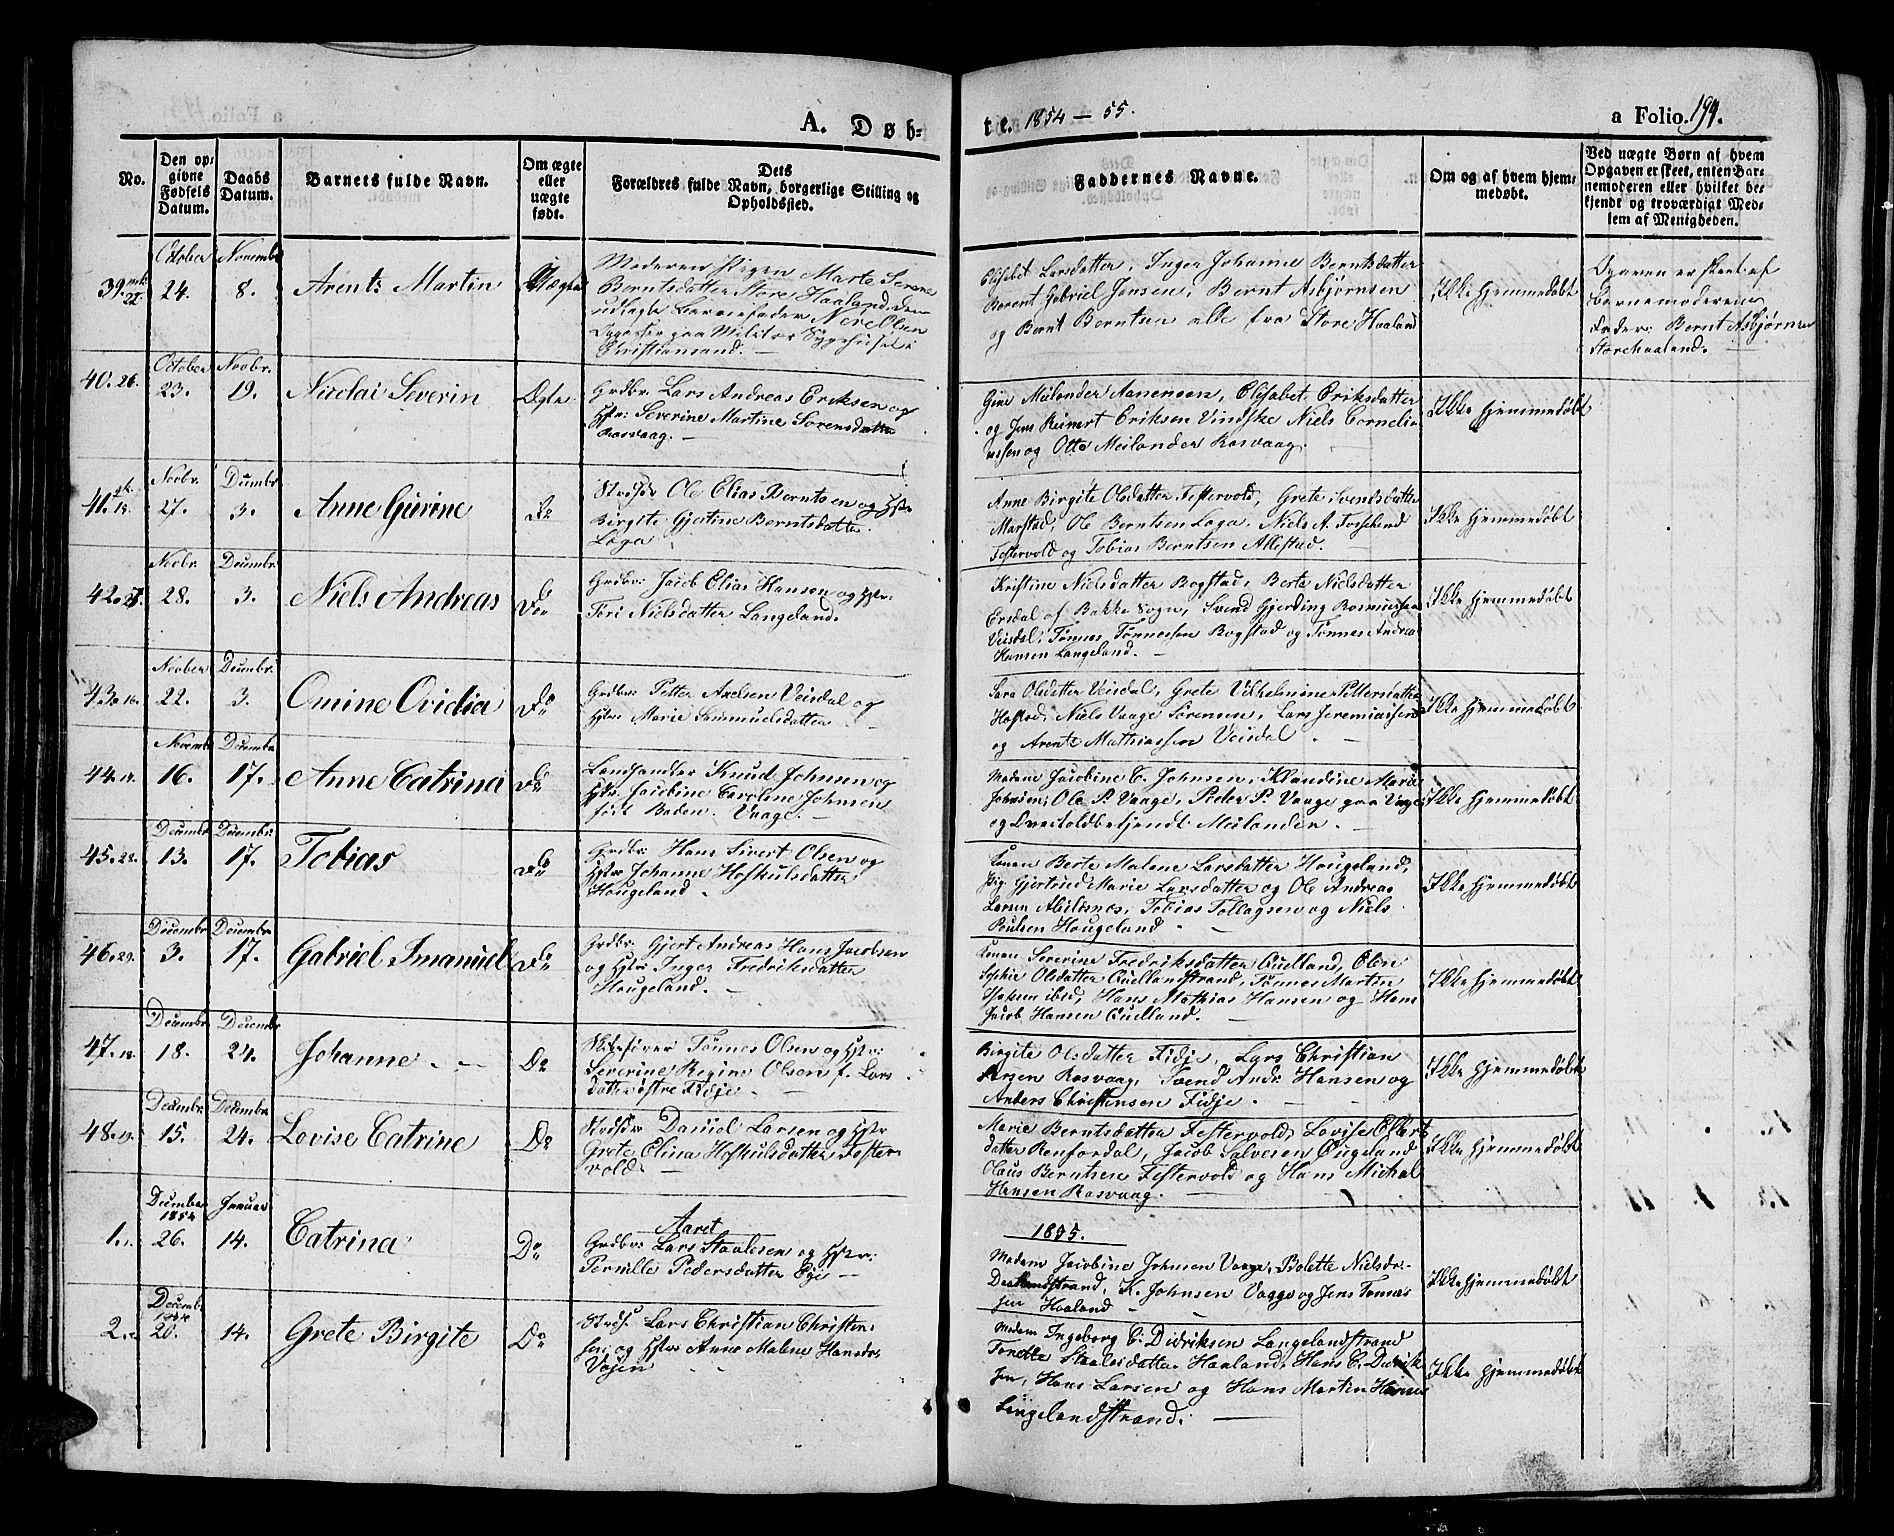 A. Døb=
te. 1854 — 55.
a Folio. 194.
No.
Den op=
givne
Fødsels
Datum.
Daabs
Datum.
Barnets fulde Navn.
Om ægte
eller
uægte
født.
Dets
Forældres fulde Navn, borgerlige Stilling og
Opholdssted.
Faddernes Navne.
Om og af hvem hjem=
medøbt.
Ved uægte Børn af hvem
Opgaven er skeet, enten Bar=
nemoderen eller hvilket be=
kjendt og troværdigt Med=
lem af Menigheden.
39.
October
24.
Novembr
8.
Arent Martin
Uægte
Moderen Pigen Marte Serene
Berntsdatter Store Haaland, den
udlagte Barnefader Nere Olsen
paa Militær Sygehuset i
Christiansand. —
Elisabet Larsdatter, Inger Johanne Berntsdatter
Berent Gabriel Jansen, Bernt Asbjørnsen
og Bernt Berntsen alle fra Store Haaland
Ikke hjemmedøbt
Opgaven er skeet af
Barnemoderens
Fader: Bernt Asbjørnsen
Storehaaland. —
40. 26.
October
23.
Novbr.
19.
Nicolai Severin
Ægte
Grdbr: Lars Andreas Eriksen og
Hstr: Severine Martine Sørensdatter
Rasvaag. —
Gine Meilander Aanensen, Elisabet Eriksdatter
og Jens Reinert Eriksen Vindske Niels Corneli=
ussen og Otto Meilander Rasvaag.
Ikke hjemmedøbt
41.
Novbr.
27.
Decembr
3.
Anne Gurine
Do
Strdsdr Ole Elias Berntsen og Hstr
Birgite Gjertine Berntsdatter
Loga
Anne Birgite Olsdatter Festervold, Grete Svendsdatter
Marstad, Ole Berntsen Loga, Niels A.
Festervold og Tobias Berntsen Allestad.
Ikke hjemmedøbt
42. 27.
Novbr.
28.
Decembr.
3.
Niels Andreas
Do
Grdbr: Jacob Elias Hansen og Hstr:
Tori Nielsdatter Langeland.
Kristine Nielsdatter Bogstad, Berte Nielsdatter
Ersdal af Bakke Sogn, Svend Gjerding Rasmussen
Veisdal, Tønnes Tønnessen Bogstad og Tønnes Andreas
Hansen Langeland. —
Ikke hjemmedøbt
43. 16.
Novber
22.
Decembr.
3.
Omine Ovidia
Do
Grdbr: Petter Axelsen Veisdal og
Hstr: Marie Sammuelsdatter —
Sara Olsdatter Veisdal, Grete Vilhelmine Pettersdatter
Hofstad, Niels Vaage Sørensen, Lars Jeremiassen
og Arent Mathiassen Veisdal. —
Ikke hjemmedøbt
44.
Novembr
16.
Decembr
17.
Anne Catrina
Do
Landhandler Knud Johnsen og
Hstr Jacobine Caroline Johnsen
født Boden. Vaage. —
Madam Jacobine C. Johnsen, Klaudine Marie
Johnsen, Ole P. Vaage, Peder P. Vaage paa Vaage
og Overtoldbetjendt Meilander. —
Ikke hjemmedøbt
45. 28.
Decembr
13.
Decembr.
17.
Tobias
Do
Grdbr: Hans Sivert Olsen og
Hstr Johanne Hofkulsdatter
Hougeland.
Konen Berte Malene Larsdatter Hougeland,
Pig. Gjertrud Marie Larsdatter og Ole Andreas
Larsen Abildsnes, Tobias Tollagsen og Niels
Poulsen Hougeland. —
Ikke hjemmedøbt
46. 29.
Decembr
3.
Decembr
17.
Gabriel Imanuel
Do
Grdbr: Gjert Andreas Hans Jacobsen
og Hstr Inger Fredriksdatter
Hougeland. —
Konen Severine Fredriksdatter Quelland, Elen
Sophie Olsdatter Quellandstrand, Tønnes Martin
ibid, Hans Mathias Hansen og Hans
Jacob Hansen Quelland.
Ikke hjemmedøbt
47.
Decembr
18.
Decembr
24.
Johanne. —
Do
Skibsfører Tønnes Olsen og Hstr:
Severine Regine Olsen f. Lars
datter vestre Fidje. —
Birgite Olsdatter Fidje, Lars Christian
Larsen Rasvaag, Svend Andr. Hansen og
Anders Christensen Fidje. —
Ikke hjemmedøbt
48. 19.
Decembr.
15.
Decembr.
24.
Lovise Catrine
Do
Strdsdr Daniel Larsen og Hstr
Grete Elina Hofkulsdatter Fester=
vold. —
Marie Berntsdatter Festervold, Lovise Ellerts
datter Renfordal, Jacob Salvesen Øugeland
Olaus Berntsen Festervold og Hans Michal
Hansen Rasvaag. —
Ikke hjemmedøbt
Aaret
1855.
1.
December
1854
26.
Januar
14.
Catrina
Do
Grdbr: Lars Staalesen og Hstr:
Pernille Pedersdatter Eije —
Madam Jacobine Johnsen Vaage, Bolette Nielsdr.
K. Johnsen Vaage og Jens Tønnes=
sen Haaland —
Ikke hjemmedøbt
2.
Decembr
1854
20.
14.
Grete Birgite
Do
Strds. Lars Christian Christen=
sen og Hstr Anne Malene Hansdr.
Vøien
Madam Ingeborg C. Didriksen Langelandstrand
Tonette Staalesdatter Haaland, Hans C. Didrik
sen, Hans Larsen og Hans Martin Hansen
Lingelandstrand. —
Ikke hjemmedøbt